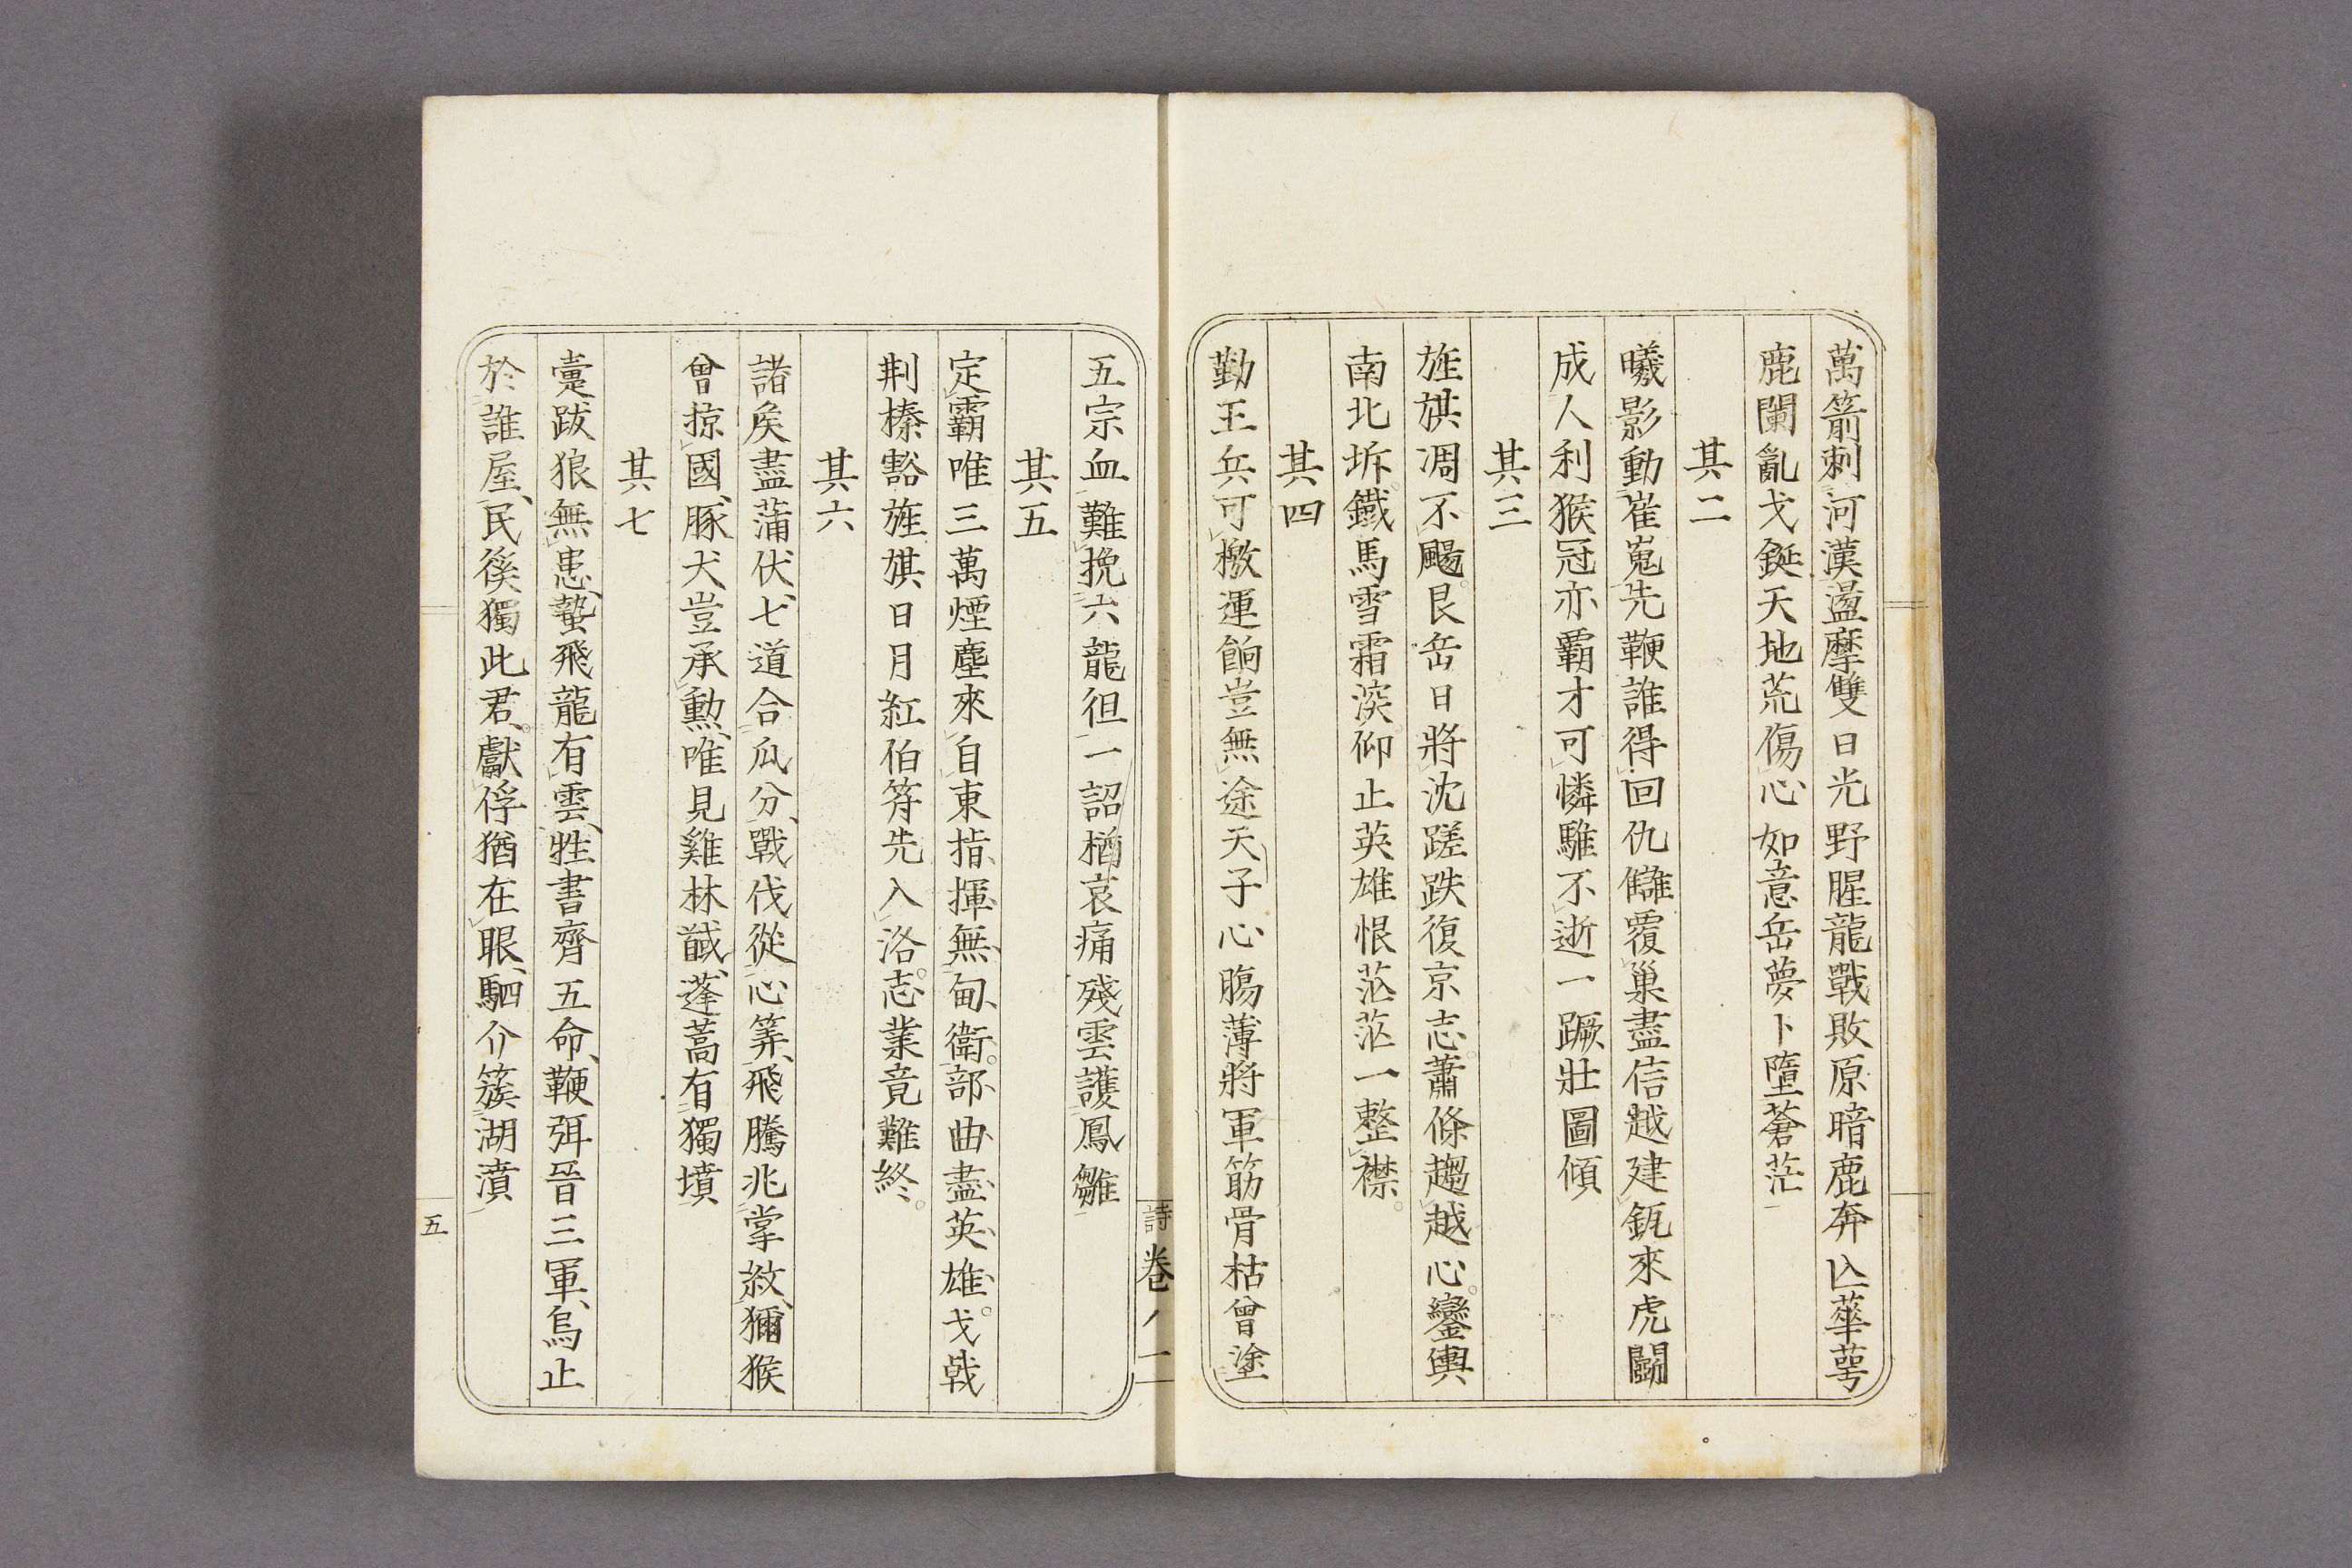 萬箭刺河漢盪摩雙日光野腥龍戰敗原暗鹿奔亾華萼
鹿闌亂戈鋋天地荒傷心如意岳夢卜墮蒼茫
其二
曦影動崔嵬先鞭誰得回仇讎覆巢盡信越建瓴來虎鬭
成人利猴冠亦霸才可憐騅不逝一蹶壯圖傾
其三
旌旗凋不颺艮岳日將沈蹉跌復京志蕭條趨越心鑾輿
南北坼鐵馬雪霜深仰止英雄恨茫茫一整襟
其四
勤王兵可檄運餉豈無途天子心腸薄將軍筋骨枯曾塗
五宗血難挽六龍徂一詔楢哀痛殘雲護鳳雛
其五
定霸唯三萬煙塵來自東指揮無甸衛部曲盡英雄戈戟
荆榛豁旌旗日月紅伯符先入洛志業竟難終
其六
諸矦盡蒲伏七道合瓜分戰伐從心筭飛騰兆掌紋獼猴
曾掠國豚犬豈承勲唯見雞林馘蓬蒿有獨墳
其七
疐跋狼無患蟄飛龍有雲牲書齊五命鞭弭晉三軍烏止
於誰屋民徯獨此君獻俘猶在眼駟介簇湖濆
詩卷ノ一
五